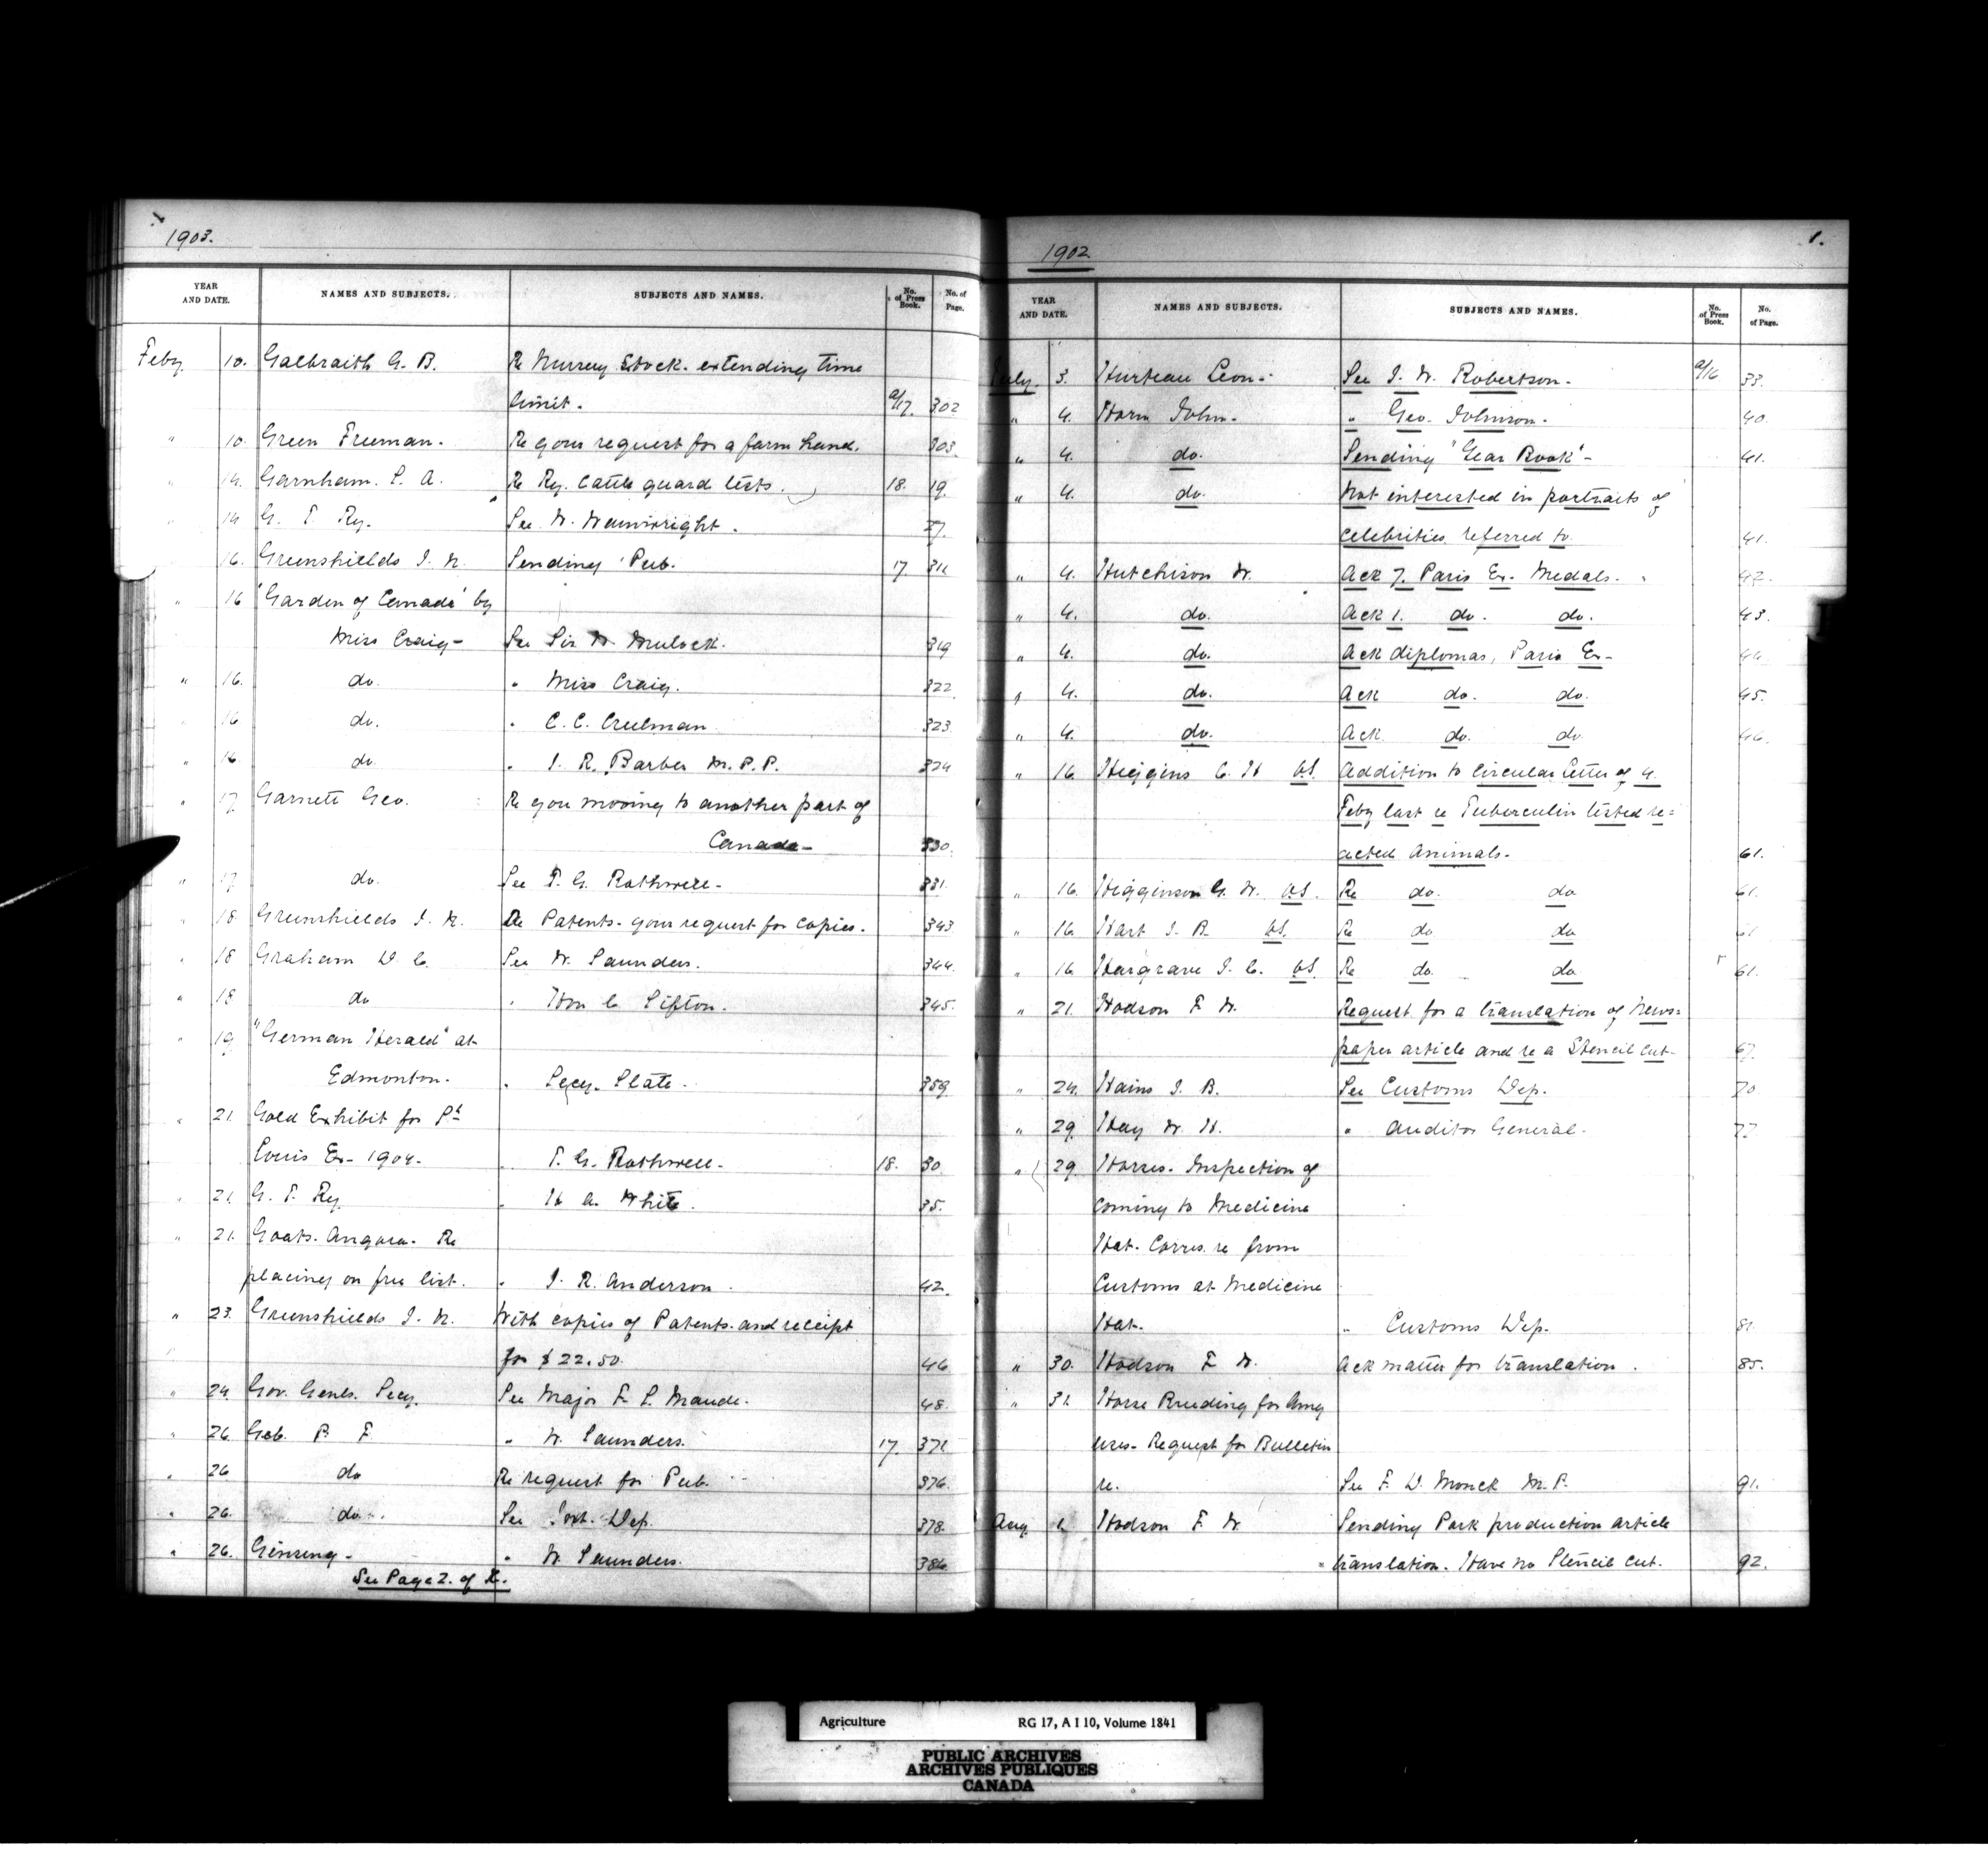 1903.
YEAR AND DATE. NAMES AND SUBJECTS. SUBJECTS AND NAMES. No. of Press Book. No. of Page.
Feby 10. Galbraith G. B. Re Nursery Stock. extending time
limit. a/17. 302
" 10. Green Freeman. Re your request for a farm hand. 303.
" 14. Garnham. S. A. Re Ry. Cattle guard tests. 18. 19.
" 14 G. T. Ry. See W. Wainwright. 27.
16. Greenshields J. N. Sending Pub. 17 311
" 16 "Garden of Canada" by
Miss Craig- See Sir W. Mulock. 319
" 16. do. " Miss Craig. 322
" 16 do. " C. C. Creelman 323
" 16. do " J. R. Barber M.P.P. 324
" 17 Garnett Geo. Re your moving to another part of
Canada- 330.
" 17 do. See P. G. Rothwell- 331.
" 18 Greenshields J. N. Re Patents- your request for copies. 343
" 18 Graham D. C. See W. Saunders. 344.
" 18 do " Hon C. Sifton. 345.
" 19 "German Herald" at
Edmonton. " Secy. State. 359
" 21. Gold Exhibit for St
Louis Ex- 1904. " P. G. Rothwell- 18. 30.
" 21. G. T. Ry. " H. A. White. 35.
" 21. Goats. Angora. Re
placing on free list. " J. R. Anderson. 42.
" 23. Greenshields J. N. With copies of Patents. and receipt
for $22.50. 46
" 24. Gov. Genls. Secy. See Major F. S. Maude. 48.
" 26. Geb. P. F. " W. Saunders. 17. 371
" 26 do Re request for Pub. 376.
" 26. do. See Int. Dep. 378.
" 26. Ginseng- " W. Saunders. 386
See Page 2. of
1902. 1.
YEAR AND DATE. NAMES AND SUBJECTS. SUBJECTS AND NAMES. No. of Press Book. No. of Page.
July. 3. Hurteau Leon- See J. W. Robertson. a/16 33.
" 4. Horn John. " Geo. Johnson. 40.
" 4. do. Sending "Year Book"- 41.
" 4. do. Not interested in portraits of
celebrities referred to. 41.
" 4. Hutchison W. Ack 7. Paris Ex. Medals. 42.
" 4. do. Ack 1. do. do. 43.
" 4. do. Ack diplomas, Paris Ex- 44.
" 4. do. Ack do. do. 45.
" 4. do. Ack do. do 46.
" 16. Higgins C. H. V.S. Addition to Circular letter of 4.
Feby last re Tuberculin tested re=
acted Animals. 61.
" 16. Higginson G. W. V.S. Re do. do 61.
" 16. Hart J. B. V.S. Re do do 61
" 16 Hargrave J. C. V.S. Re do. do 61.
" 21. Hodson F. W. Request for a translation of News=
paper article and re a Stencil Cut. 67.
" 24. Hains J. B. See Customs Dep. 70
" 29. Hay W. H. " Auditor General. 77
" 29. Horses. Inspection of
coming to Medicine
Hat. Corres. re from
Customs at Medicine
Hat. " Customs Dep. 81
" 30. Hodson F. W. Ack matter for translation. 85.
" 31. Horse Breeding for Army
uses- Request for Bulletin
re. See F. D. Monck M.P. 91.
Aug 1. Hodson F. W. Sending Pork production article
translation. Have no Stencil Cut. 92.
Agriculture RG 17, A I 10, Volume 1841
PUBLIC ARCHIVES
ARCHIVES PUBLIQUES
CANADA